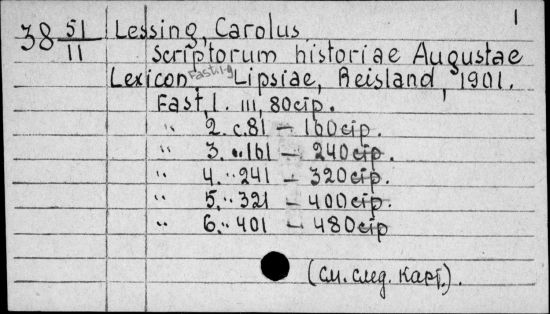 1
38 51/11 Lessing, Carolus.
Scriptorum historiae Augustae
Lexicon. Fast.1-9 Lipsiae, Reisland, 1901.
Fast. 1. III, 80 стр.
" 2. с. 81 — 160 стр.
" 3. " 161 — 240 стр.
" 4. " 241 — 320 стр.
" 5. " 321 — 400 стр.
" 6. " 401 — 480 стр
(См. след. карт.).